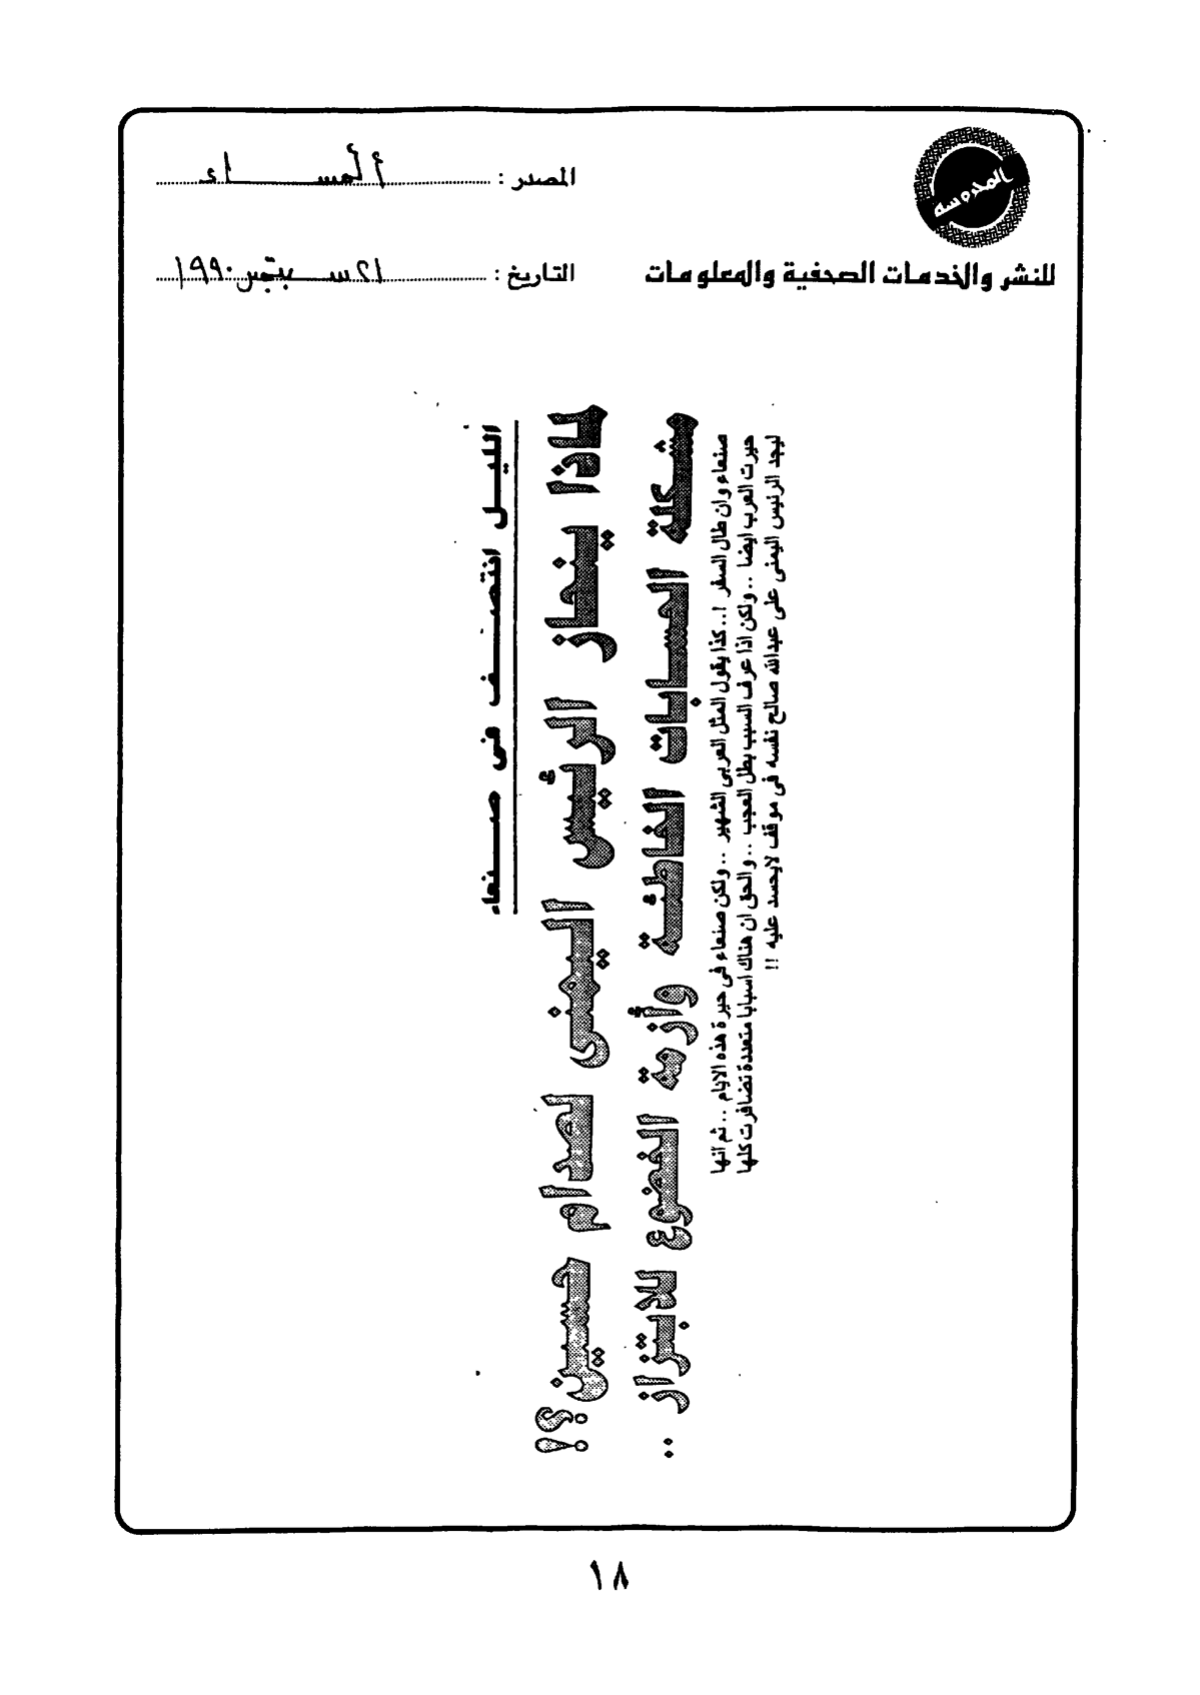 المحروسه
المصدر : المساء
للنشر والخدمات الصحفية والمعلومات
التاريخ : ٢١ سبتمبر ١٩٩٠
الليل انتصف فى صنعاء
لماذا ينحاز الرئيس اليمنى لصدام حسين ؟!
مشكلة الحسابات الخاطئة وأزمة الخضوع للابتزاز ..
صنعاء وان طال السفر !.. كذا يقول المثل العربى الشهير .. ولكن صنعاء فى حيرة هذه الايام .. ثم انها
حيرت العرب ايضا .. ولكن اذا عرف السبب بطل العجب .. والحق ان هناك اسبابا متعددة تضافرت كلها
ليجد الرئيس اليمنى على عبدالله صالح نفسه فى موقف لايحسد عليه !!
١٨